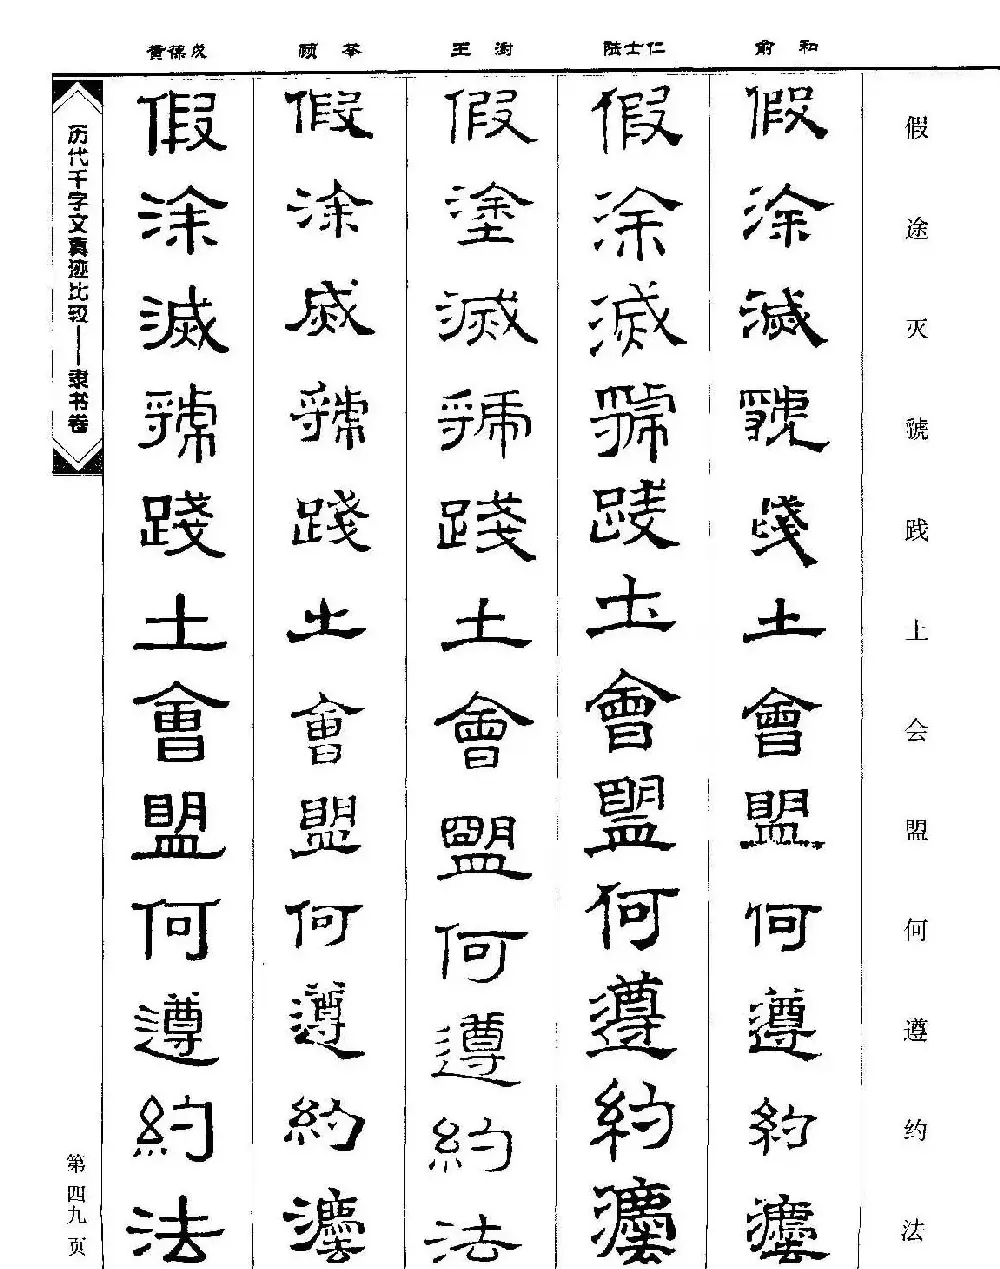 俞和
陆士仁
王澍
顾苓
黄葆戉
假途灭虢践土会盟何遵约法
假涂滅虢踐土會盟何遵約灋
假涂滅虢踐土會盟何遵約灋
假塗滅虢踐土會盟何遵約法
假涂烕虢踐土會盟何遵約灋
假涂滅虢踐土會盟何遵約法
历代千字文真迹比较——隶书卷
第四九页